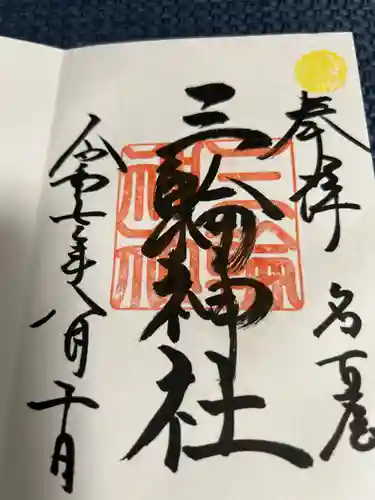 奉拝
名古屋
三輪神社
三輪神社
令和七年八月二十日